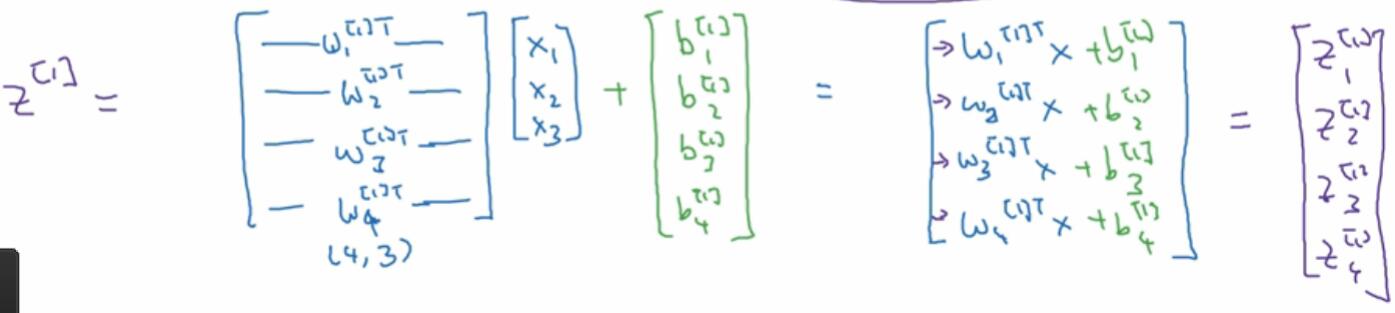 z^{[1]} = \begin{bmatrix} — w_1^{[1]T} — \\ — w_2^{[1]T} — \\ — w_3^{[1]T} — \\ — w_4^{[1]T} — \end{bmatrix} \begin{bmatrix} x_1 \\ x_2 \\ x_3 \end{bmatrix} + \begin{bmatrix} b_1^{[1]} \\ b_2^{[1]} \\ b_3^{[1]} \\ b_4^{[1]} \end{bmatrix} = \begin{bmatrix} → w_1^{[1]T} x + b_1^{[1]} \\ → w_2^{[1]T} x + b_2^{[1]} \\ → w_3^{[1]T} x + b_3^{[1]} \\ → w_4^{[1]T} x + b_4^{[1]} \end{bmatrix} = \begin{bmatrix} z_1^{[1]} \\ z_2^{[1]} \\ z_3^{[1]} \\ z_4^{[1]} \end{bmatrix}
(4,3)